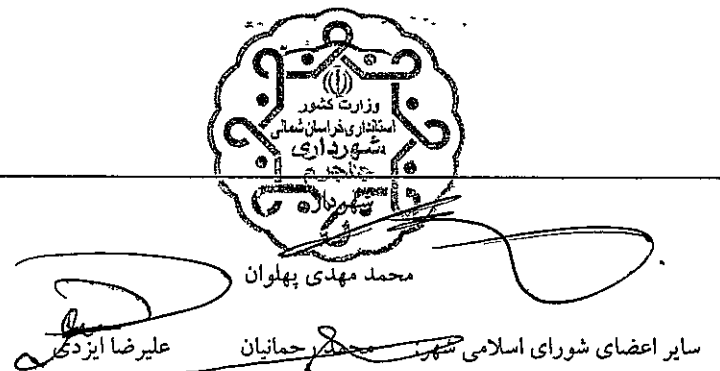 وزارت کشور
استانداری خراسان شمالی
شهرداری
شهردار
محمد مهدی پهلوان
سایر اعضای شورای اسلامی شهر: محمد رحمانیان علیرضا ایزدی